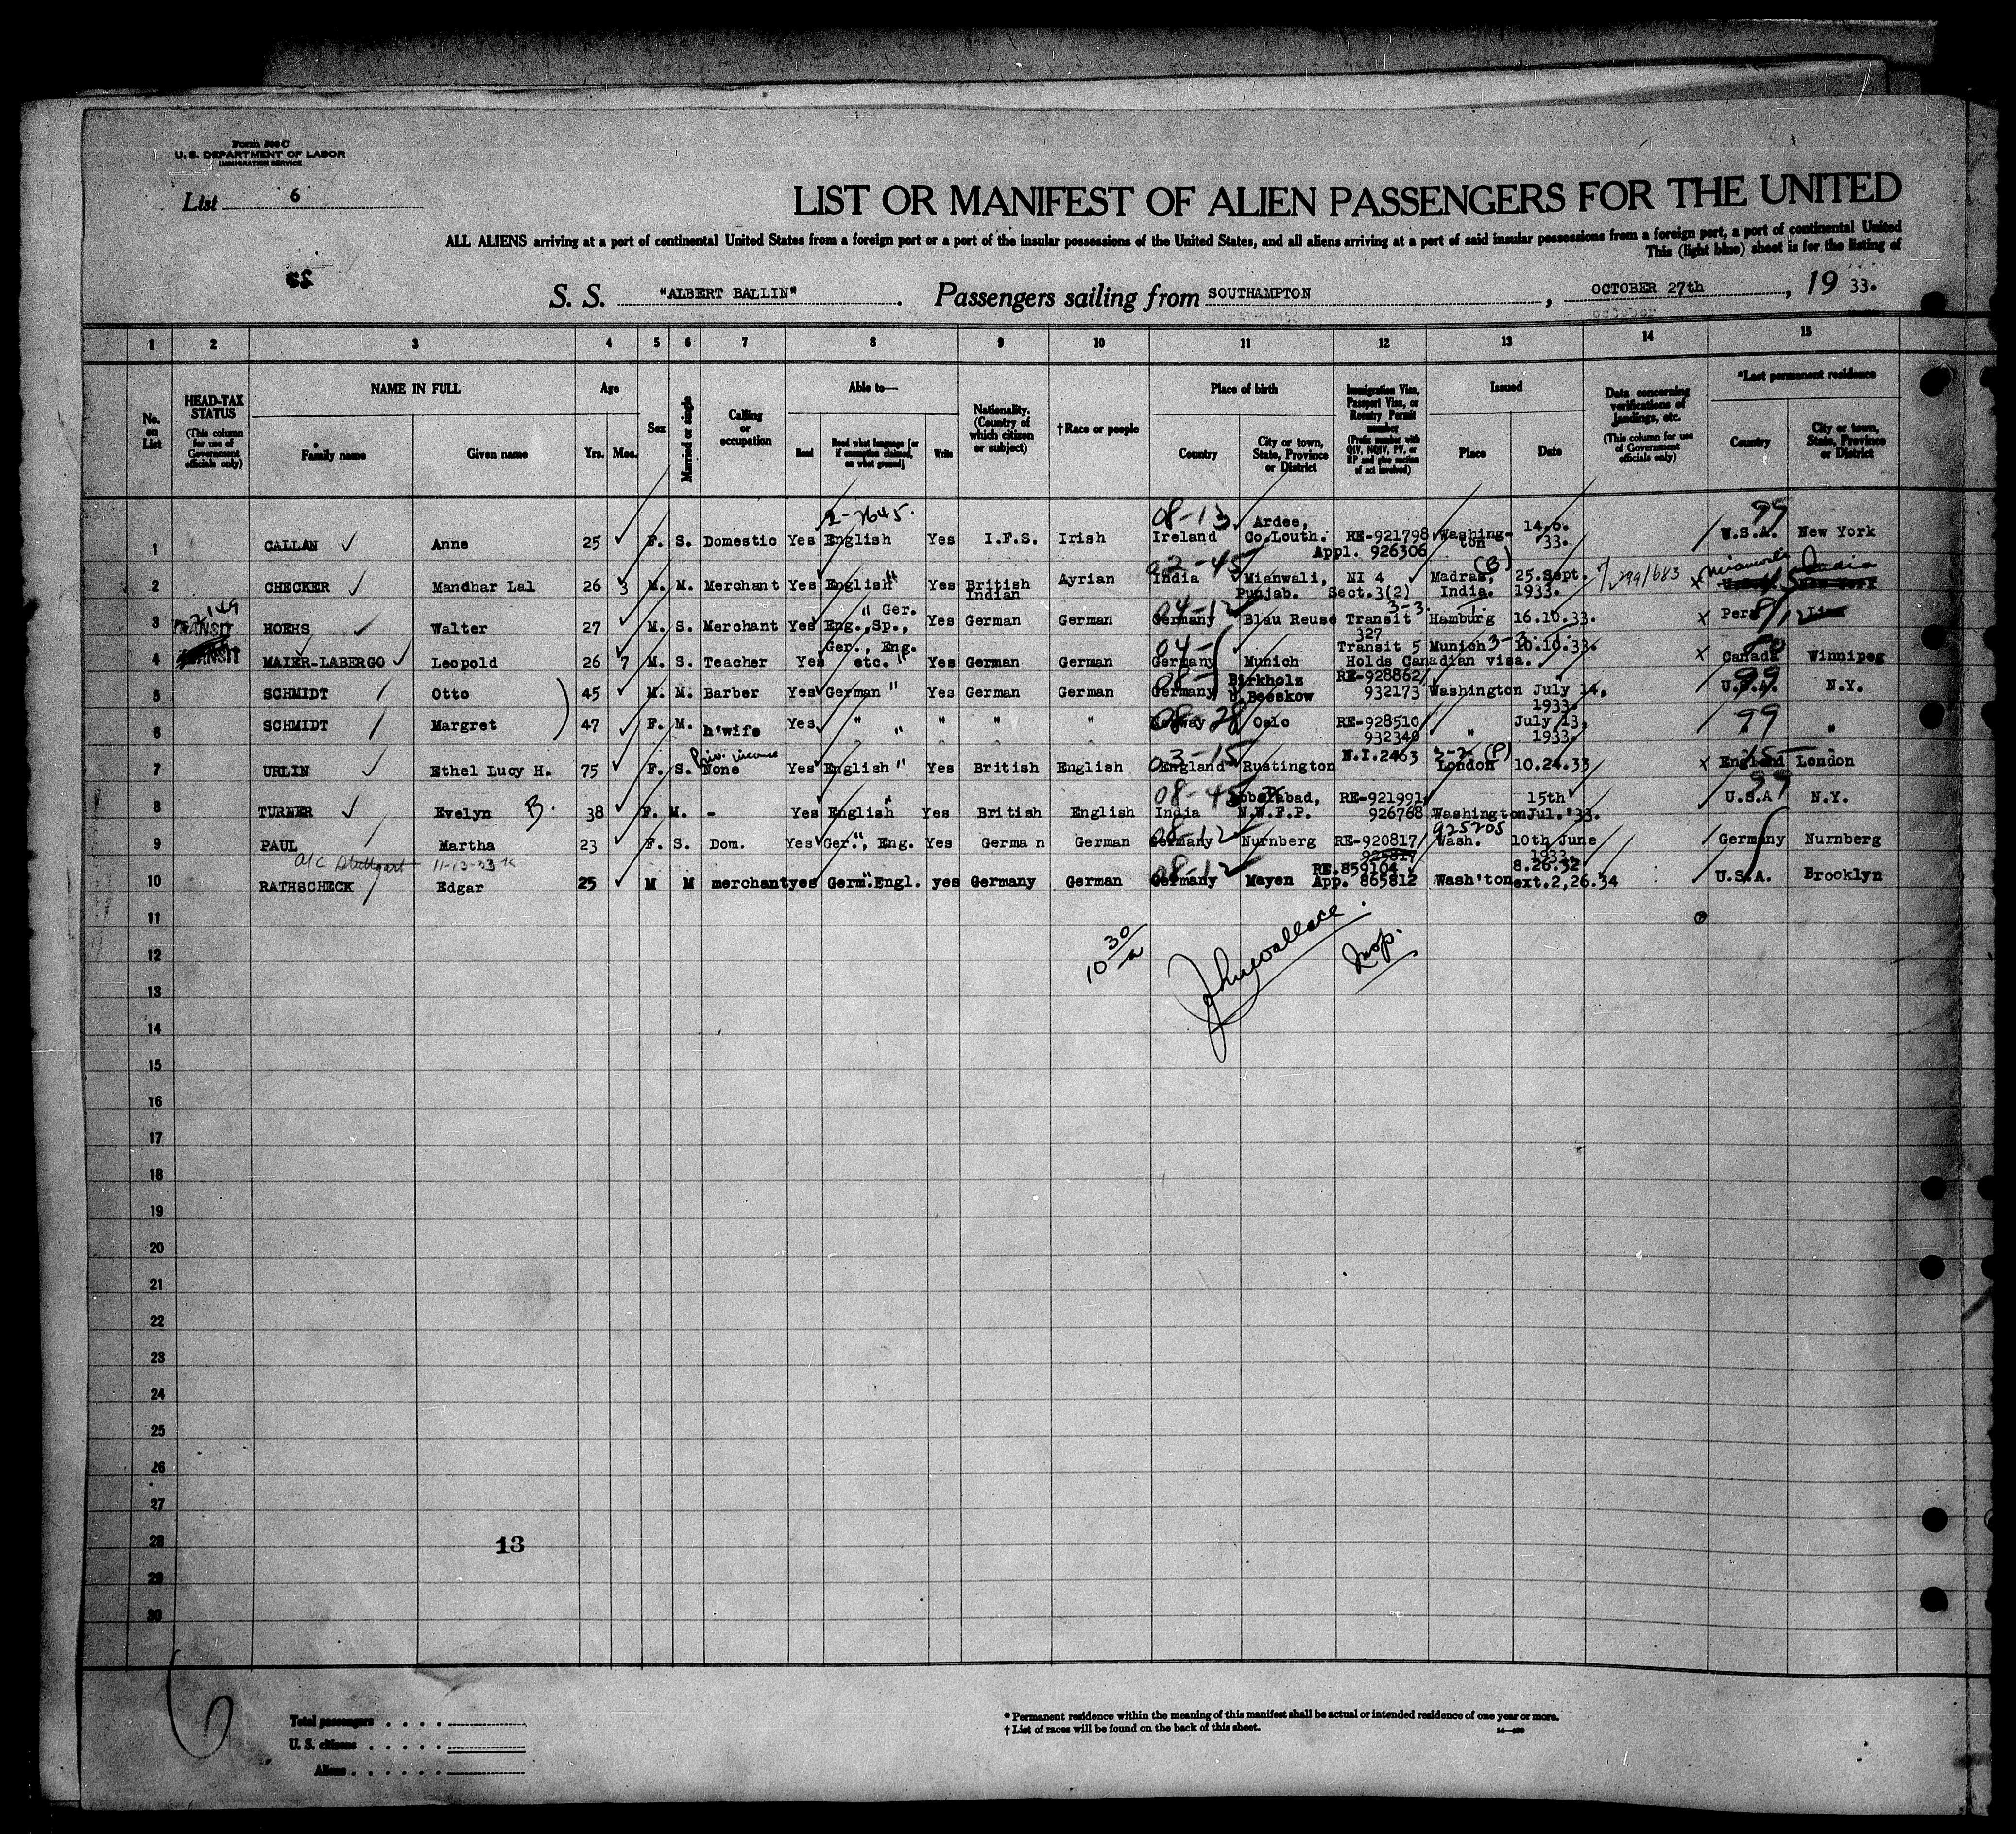 Form 500 C
U. S. DEPARTMENT OF LABOR
IMMIGRATION SERVICE
List 6
LIST OR MANIFEST OF ALIEN PASSENGERS FOR THE UNITED
ALL ALIENS arriving at a port of continental United States from a foreign port or a port of the insular possessions of the United States, and all aliens arriving at a port of said insular possessions from a foreign port, a port of continental United
This (light blue) sheet is for the listing of
S. S. "ALBERT BALLIN". Passengers sailing from SOUTHAMPTON, OCTOBER 27th, 19 33.
1 2 3 4 5 6 7 8 9 10 11 12 13 14 15
No. on List
HEAD-TAX STATUS
(This column for use of Government officials only)
NAME IN FULL
Family name Given name
Age
Yrs. Mos.
Sex
Married or single
Calling or occupation
Able to—
Read Read what language [or if exemption claimed, on what ground] Write
Nationality. (Country of which citizen or subject)
†Race or people
Place of birth
Country City or town, State, Province or District
Immigration Visa, Passport Visa, or Reentry Permit number
(Prefix number with QIV, NQIV, PV, or RP and give section of act involved)
Issued
Place Date
Data concerning verifications of landings, etc.
(This column for use of Government officials only)
*Last permanent residence
Country City or town, State, Province or District
2-7645. 08-13 99
1 CALLAN Anne 25 F. S. Domestic Yes English Yes I.F.S. Irish Ireland Ardee, Co.Louth. RE-921798 Appl. 926306 Washington 14.6.33. U.S.A. New York
02-45 (B) India
2 CHECKER Mandhar Lal 26 3 M. M. Merchant Yes English " Yes British Indian Ayrian India Mianwali, Punjab. NI 4 Sect.3(2) Madras, India. 25.Sept. 1933. 299/683 U.S.A. New York
TRANSIT 04-12 3-3.
3 HOEHS Walter 27 M. S. Merchant Yes " Ger. Eng.,Sp., Yes German German Germany Blau Reuse Transit 327 Hamburg 16.10.33. Peru Lima
TRANSIT 04- 3-3
4 MAIER-LABERGO Leopold 26 7 M. S. Teacher Yes Ger., Eng. etc. " Yes German German Germany Munich Transit 5 Munich 10.10.33. Holds Canadian visa. Canada Winnipeg
08- 99
5 SCHMIDT Otto 45 M. M. Barber Yes German " Yes German German Germany Birkholz Beeskow RE-928862 932173 Washington July 14, 1933. U.S.A. N.Y.
08-28 99
6 SCHMIDT Margret 47 F. M. h'wife Yes " " " " " Norway Oslo RE-928510 932340 " July 13, 1933. "
Priv. income 03-15 2-2 (P) 15
7 URLIN Ethel Lucy H. 75 F. S. None Yes English " Yes British English England Rustington N.I.2463 London 10.24.33 England London
08-45 99
8 TURNER Evelyn B. 38 F. M. - Yes English " Yes British English India N.W.F.P. RE-921991 926768 Washington 15th Jul.'33. U.S.A N.Y.
08-12 925205
9 PAUL Martha 23 F. S. Dom. Yes Ger.", Eng. Yes German German Germany Nurnberg RE-920817 Wash. 10th June 1933. Germany Nurnberg
a/c Stuttgart 11-13-33 08-12
10 RATHSCHECK Edgar 25 M M merchant yes Germ. Engl. yes Germany German Germany Mayen RE.859104 App. 865812 Wash'ton 8.26.32 ext.2,26.34 U.S.A. Brooklyn
11
10 30/a John Wallace. Insp.
12
13
14
15
16
17
18
19
20
21
22
23
24
25
26
27
28 13
29
30
6
Total passengers . . . .
U. S. citizens . . . . .
Aliens . . . . . .
* Permanent residence within the meaning of this manifest shall be actual or intended residence of one year or more.
† List of races will be found on the back of this sheet.